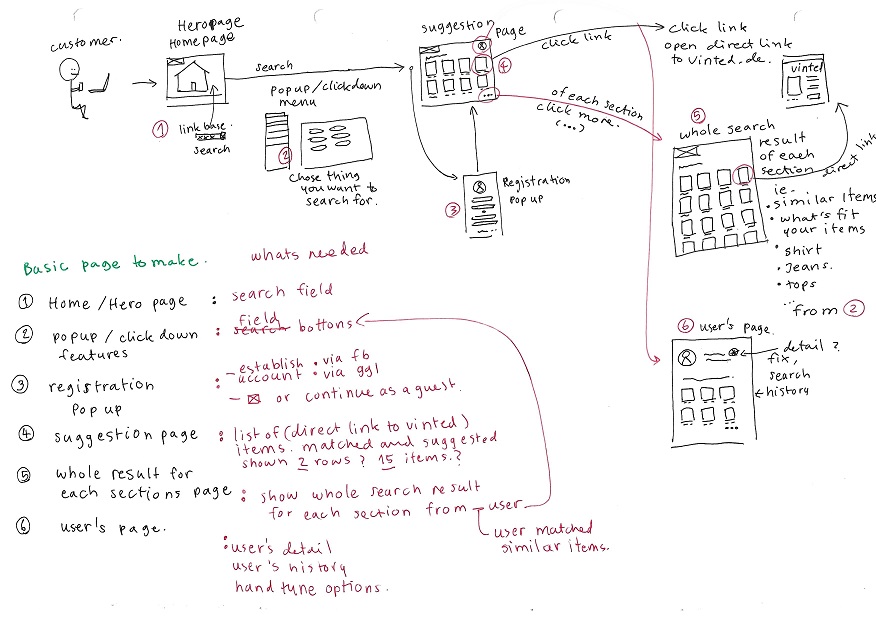 customer.
Heropage
Homepage
search
① link base.
search
popup/clickdown
menu
②
Chose thing
you want to
search for.
suggestion
page
④
...
③ Registration
Pop up
click link
click link
open direct link
to vinted.de.
vinted
of each section
click more.
(...)
⑤
whole search
result
of each
section
direct link
ie-
• similar Items
• what's fit
your items
• shirt
• Jeans.
• tops
...from ②
⑥ user's page.
detail ?
fix,
search
history
Basic page to make.
whats needed
① Home /Hero page : search field
② popup / click down features : field search bottons
③ registration Pop up
: - establish account • via fb • via ggl
- or continue as a guest.
④ suggestion page : list of (direct link to vinted)
items. matched and suggested
shown 2 rows ? 15 items.?
⑤ whole result for
each sections page : show whole search result
for each section from - user
user matched
similar items.
⑥ user's page.
: user's detail
user's history
hand tune options.